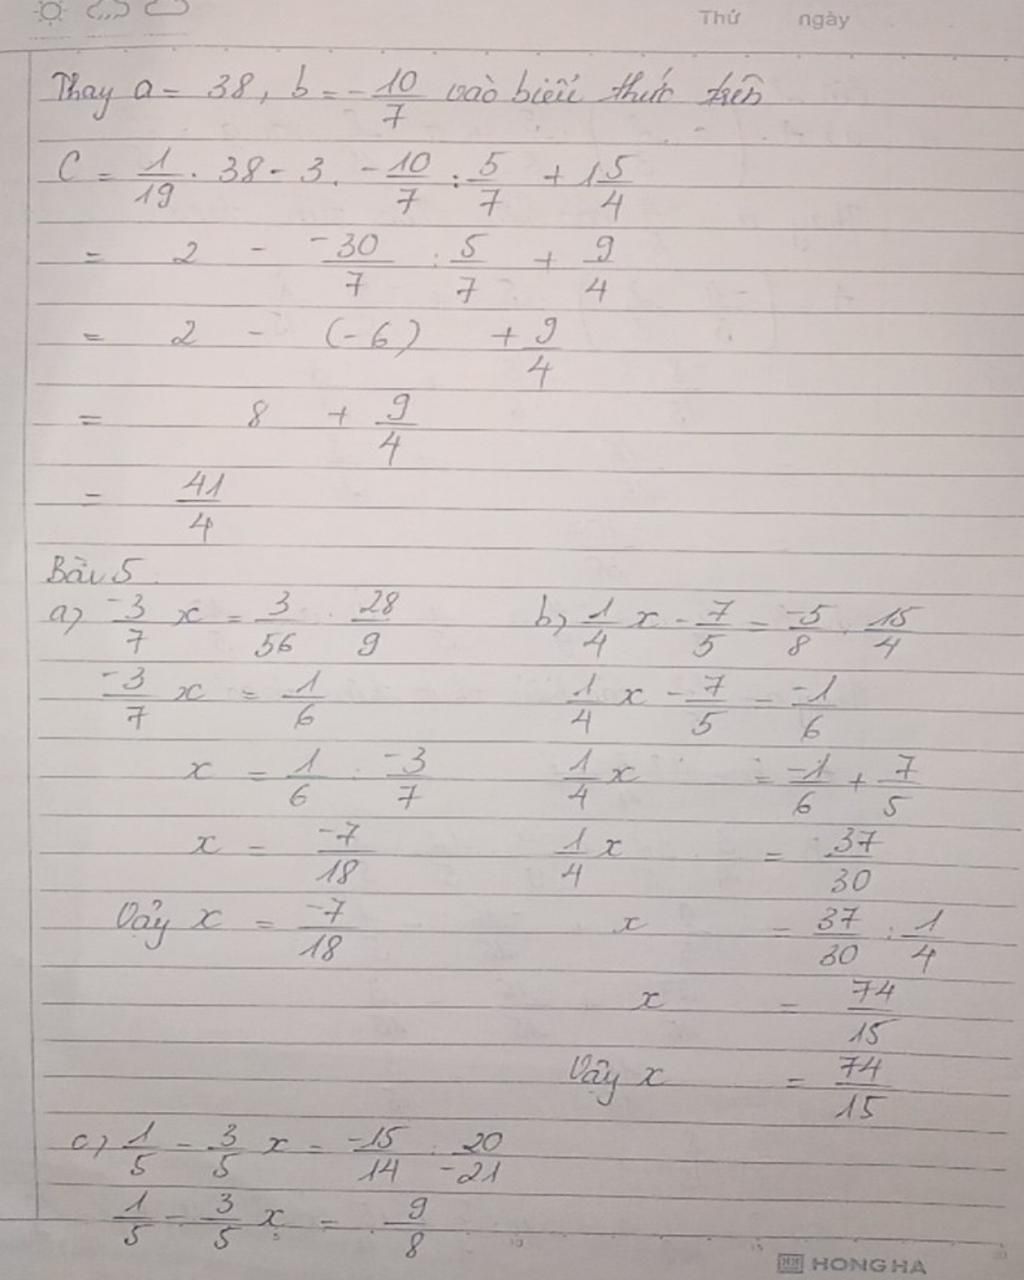 Thứ ngày
Thay a = 38, b = -10/7 vào biểu thức trên
C = 1/19 . 38 - 3 . -10/7 : 5/7 + 1 5/4
= 2 - -30/7 : 5/7 + 9/4
= 2 - (-6) + 9/4
= 8 + 9/4
= 41/4
Bài 5
a) -3/7 x = 3/56 . 28/9
-3/7 x = 1/6
x = 1/6 : -3/7
x = -7/18
Vậy x = -7/18
b) 1/4 x - 7/5 = -5/8 : 15/4
1/4 x - 7/5 = -1/6
1/4 x = -1/6 + 7/5
1/4 x = 37/30
x = 37/30 : 1/4
x = 74/15
Vậy x = 74/15
c) 1/5 - 3/5 x = -15/14 : 20/-21
1/5 - 3/5 x = 9/8
HONG HA